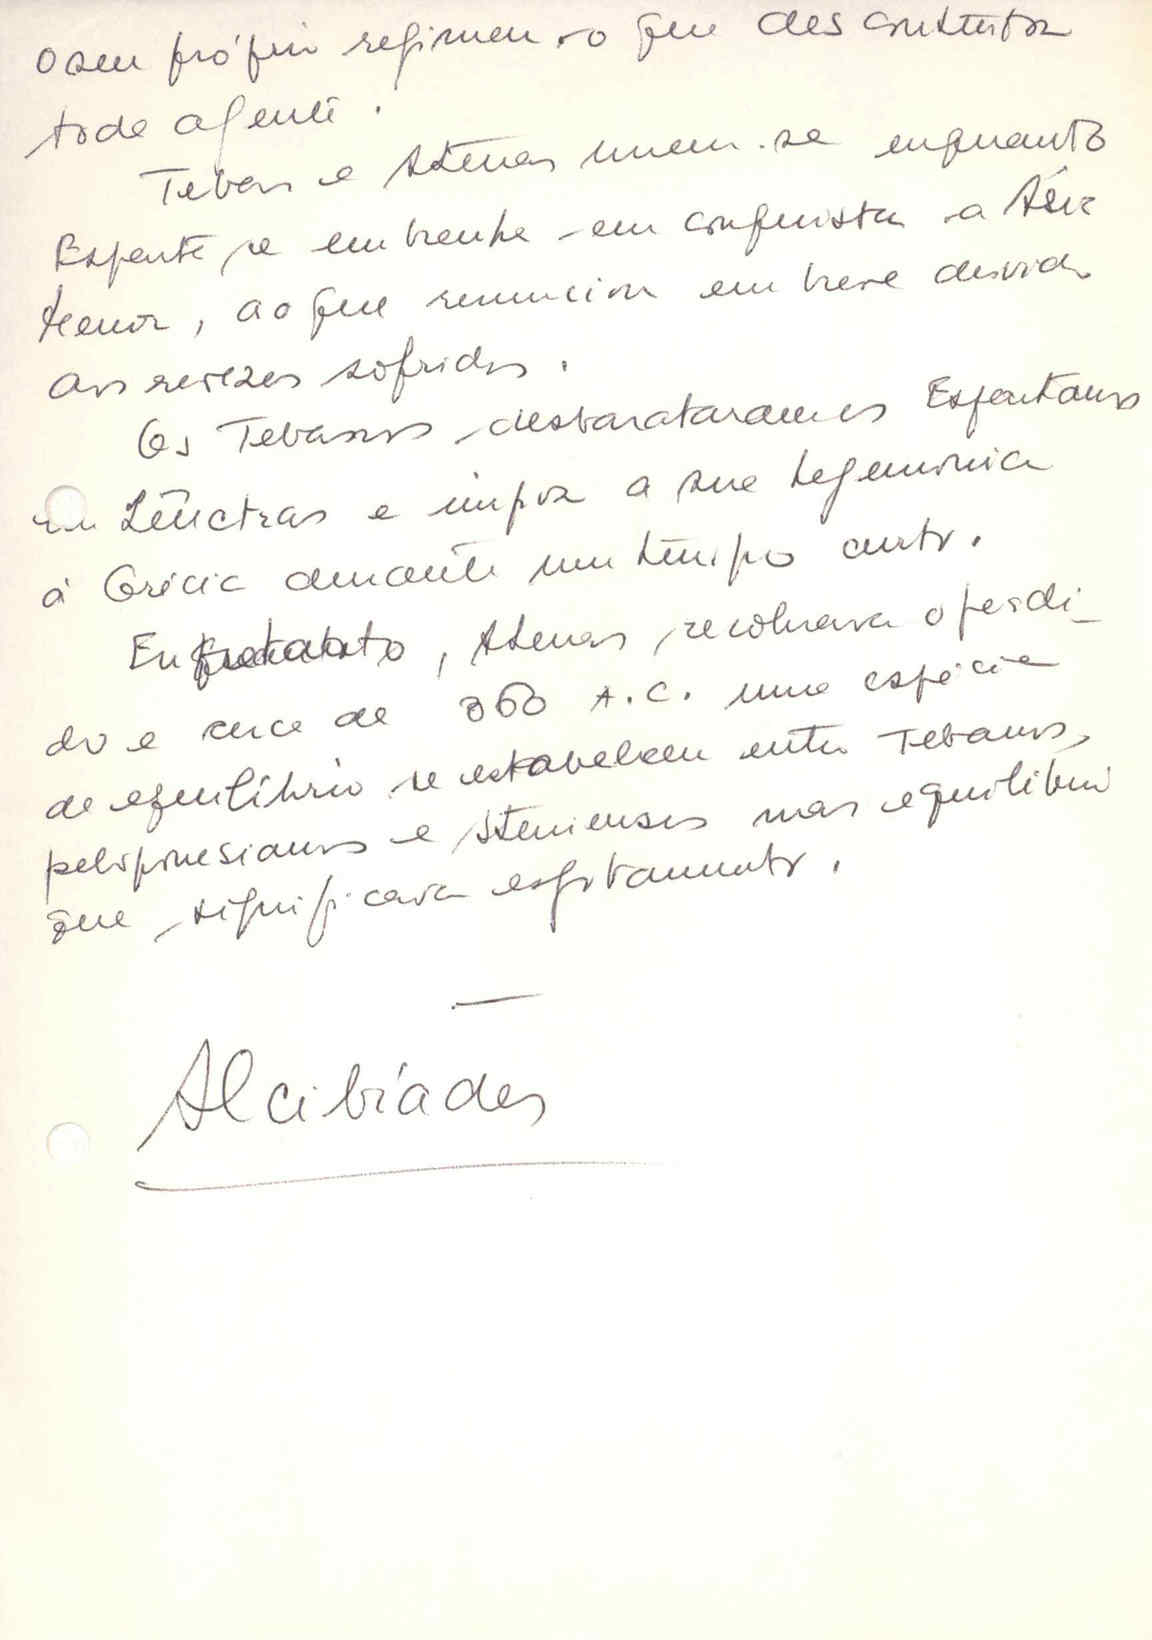 o seu próprio regimen, o que descontentou
toda a gente.
Tebas e Atenas unem-se enquanto
Esparta se embrenha em conquistar a Ásia
Menor, ao que renunciou em breve devido
aos revezes sofridos.
Os Tebanos desbarataram os Espartanos
em Lêuctras e impoz a sua hegemonia
à Grécia durante um tempo curto.
Entretanto, Atenas recobrava o perdi-
do e cerca de 360 A.C. uma espécie
de equilíbrio se estabeleceu entre Tebanos,
peloponesianos e Atenienses mas equilíbrio
que significava esgotamento.
Alcibíades